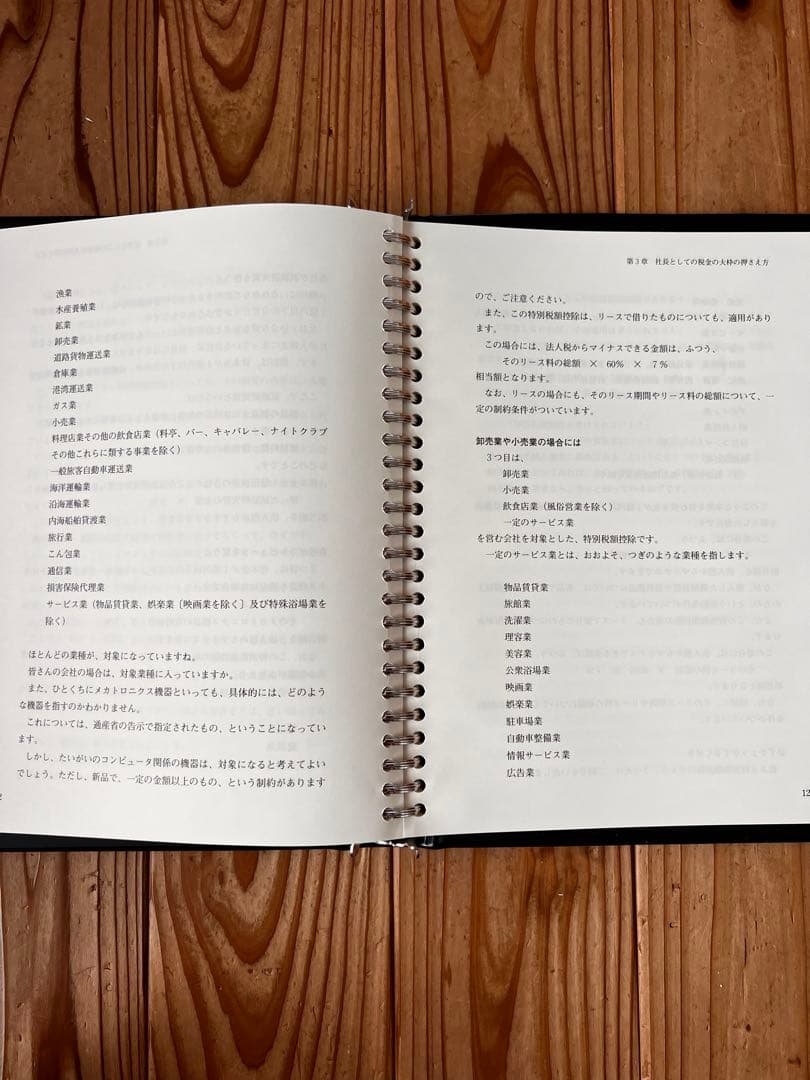 漁業
水産養殖業
鉱業
卸売業
道路貨物運送業
倉庫業
港湾運送業
ガス業
小売業
料理店業その他の飲食店業（料亭、バー、キャバレー、ナイトクラブ
その他これらに類する事業を除く）
一般旅客自動車運送業
海洋運輸業
沿海運輸業
内海船舶貸渡業
旅行業
こん包業
通信業
損害保険代理業
サービス業（物品賃貸業、娯楽業［映画業を除く］及び特殊浴場業を
除く）
ほとんどの業種が、対象になっていますね。
皆さんの会社の場合は、対象業種に入っていますか。
また、ひとくちにメカトロニクス機器といっても、具体的には、どのよう
な機器を指すのかわかりません。
これについては、通産省の告示で指定されたもの、ということになってい
ます。
しかし、たいがいのコンピュータ関係の機器は、対象になると考えてよい
でしょう。ただし、新品で、一定の金額以上のもの、という制約があります
2
第３章 社長としての税金の大枠の押さえ方
ので、ご注意ください。
また、この特別税額控除は、リースで借りたものについても、適用があり
ます。
この場合には、法人税からマイナスできる金額は、ふつう、
そのリース料の総額 × 60％ × 7％
相当額となります。
なお、リースの場合にも、そのリース期間やリース料の総額について、一
定の制約条件がついています。
卸売業や小売業の場合には
３つ目は、
卸売業
小売業
飲食店業（風俗営業を除く）
一定のサービス業
を営む会社を対象とした、特別税額控除です。
一定のサービス業とは、おおよそ、つぎのような業種を指します。
物品賃貸業
旅館業
洗濯業
理容業
美容業
公衆浴場業
映画業
娯楽業
駐車場業
自動車整備業
情報サービス業
広告業
12